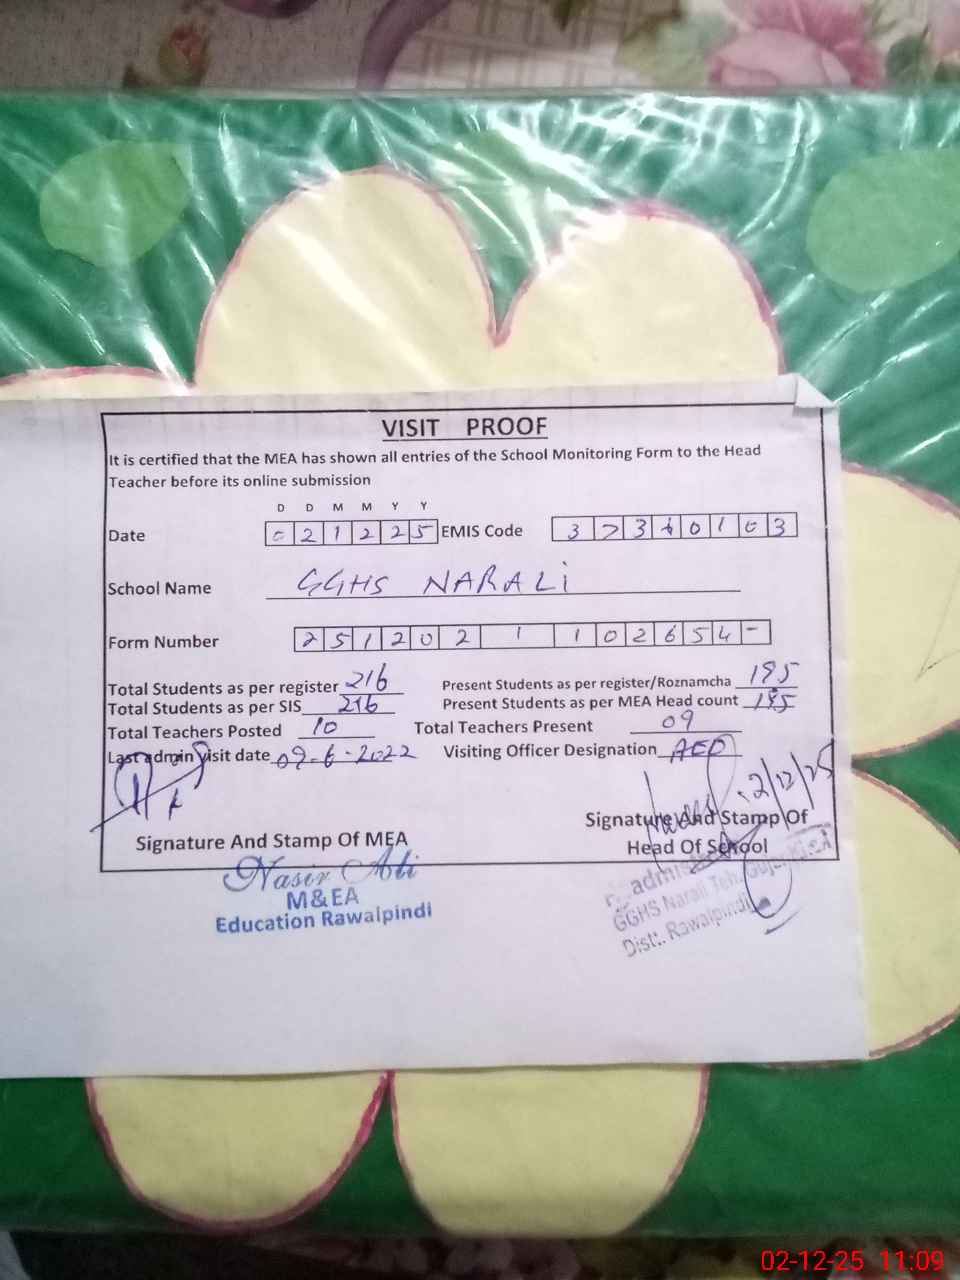 VISIT PROOF
It is certified that the MEA has shown all entries of the School Monitoring Form to the Head
Teacher before its online submission
D D M M Y Y
Date 0 2 1 2 2 5 EMIS Code 3 7 3 4 0 1 0 3
School Name GGHS NARALi
Form Number 2 5 1 2 0 2 1 1 0 2 6 5 4 -
Total Students as per register 216 Present Students as per register/Roznamcha 195
Total Students as per SIS 216 Present Students as per MEA Head count 195
Total Teachers Posted 10 Total Teachers Present 09
Last admin visit date 09-6-2022 Visiting Officer Designation AEO
2/12/25
Signature And Stamp Of MEA Signature And Stamp Of
Head Of School
Nasir Ali
M&EA
Education Rawalpindi
GGHS Narali Teh. Gujar
Distt. Rawalpindi
02-12-25 11:09